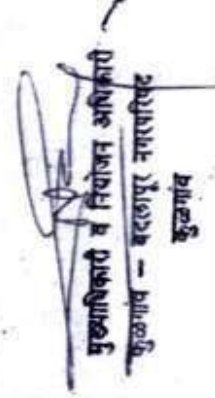 मुख्याधिकारी व नियोजन अधिकारी
कुळगांव – बदलापूर नगरपरिषद
कुळगांव